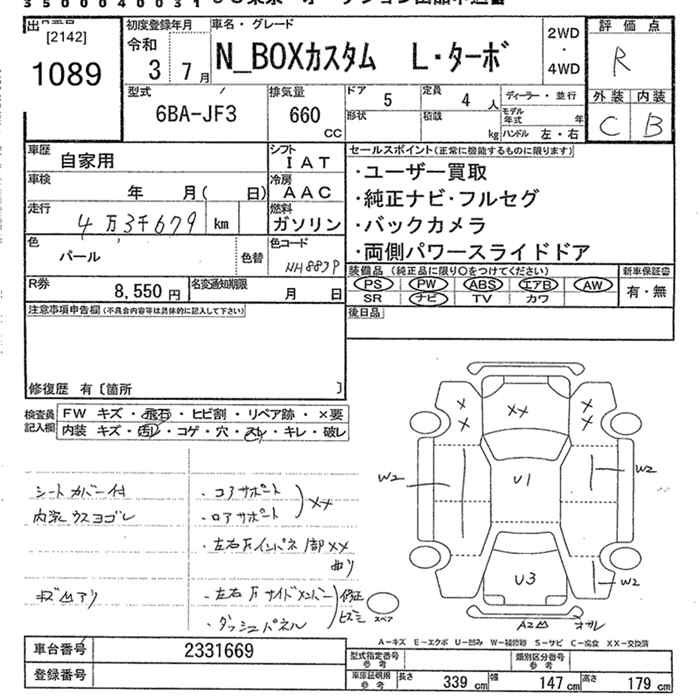 [2142]
1089
初度登録年月
令和
3 7 月
車名・グレード
N_BOXカスタム L・ターボ
2WD
・
4WD
評価点
R
外装 内装
C B
型式
6BA-JF3
排気量
660
CC
ドア
5
定員
4 人
形状
積載
kg
ディーラー・並行
モデル年式 年
ハンドル 左・右
車歴
自家用
シフト
IAT
車検
年 月( 日)
冷房
AAC
走行
4万3千679 km
燃料
ガソリン
色
パール
色替
色コード
NH883P
R券
8,550 円
名変通知期限
月 日
セールスポイント(正常に機能するものに限ります)
・ユーザー買取
・純正ナビ・フルセグ
・バックカメラ
・両側パワースライドドア
装備品(純正品に限り○をつけてください)
PS PW ABS エアB AW
SR ナビ TV カワ
新車保証書
有・無
後日品
注意事項申告欄(不具合内容等は具体的に記入して下さい)
修復歴 有〔箇所 〕
検査員
記入欄
FW キズ・飛石・ヒビ割・リペア跡・×要
内装 キズ・汚れ・コゲ・穴・スレ・キレ・破レ
シートカバー付
内装ウスヨゴレ
キズ凹アリ
・コアサポート
・ロアサポート
XX
・左右Fインパネ1部XX
曲り
・左右Fサイドメンバー
・ダッシュパネル
修正
ヒズミ
スペア
X X
XX
X X
W2
U1
W2
U3
W2
A2凹
A-キズ E-エクボ U-凹み W-補修跡 S-サビ C-腐食 XX-交換済
車台番号
2331669
登録番号
型式指定番号
参考
類別区分番号
参考
車庫証明用
参考
長さ 339 cm 幅 147 cm 高さ 179 cm